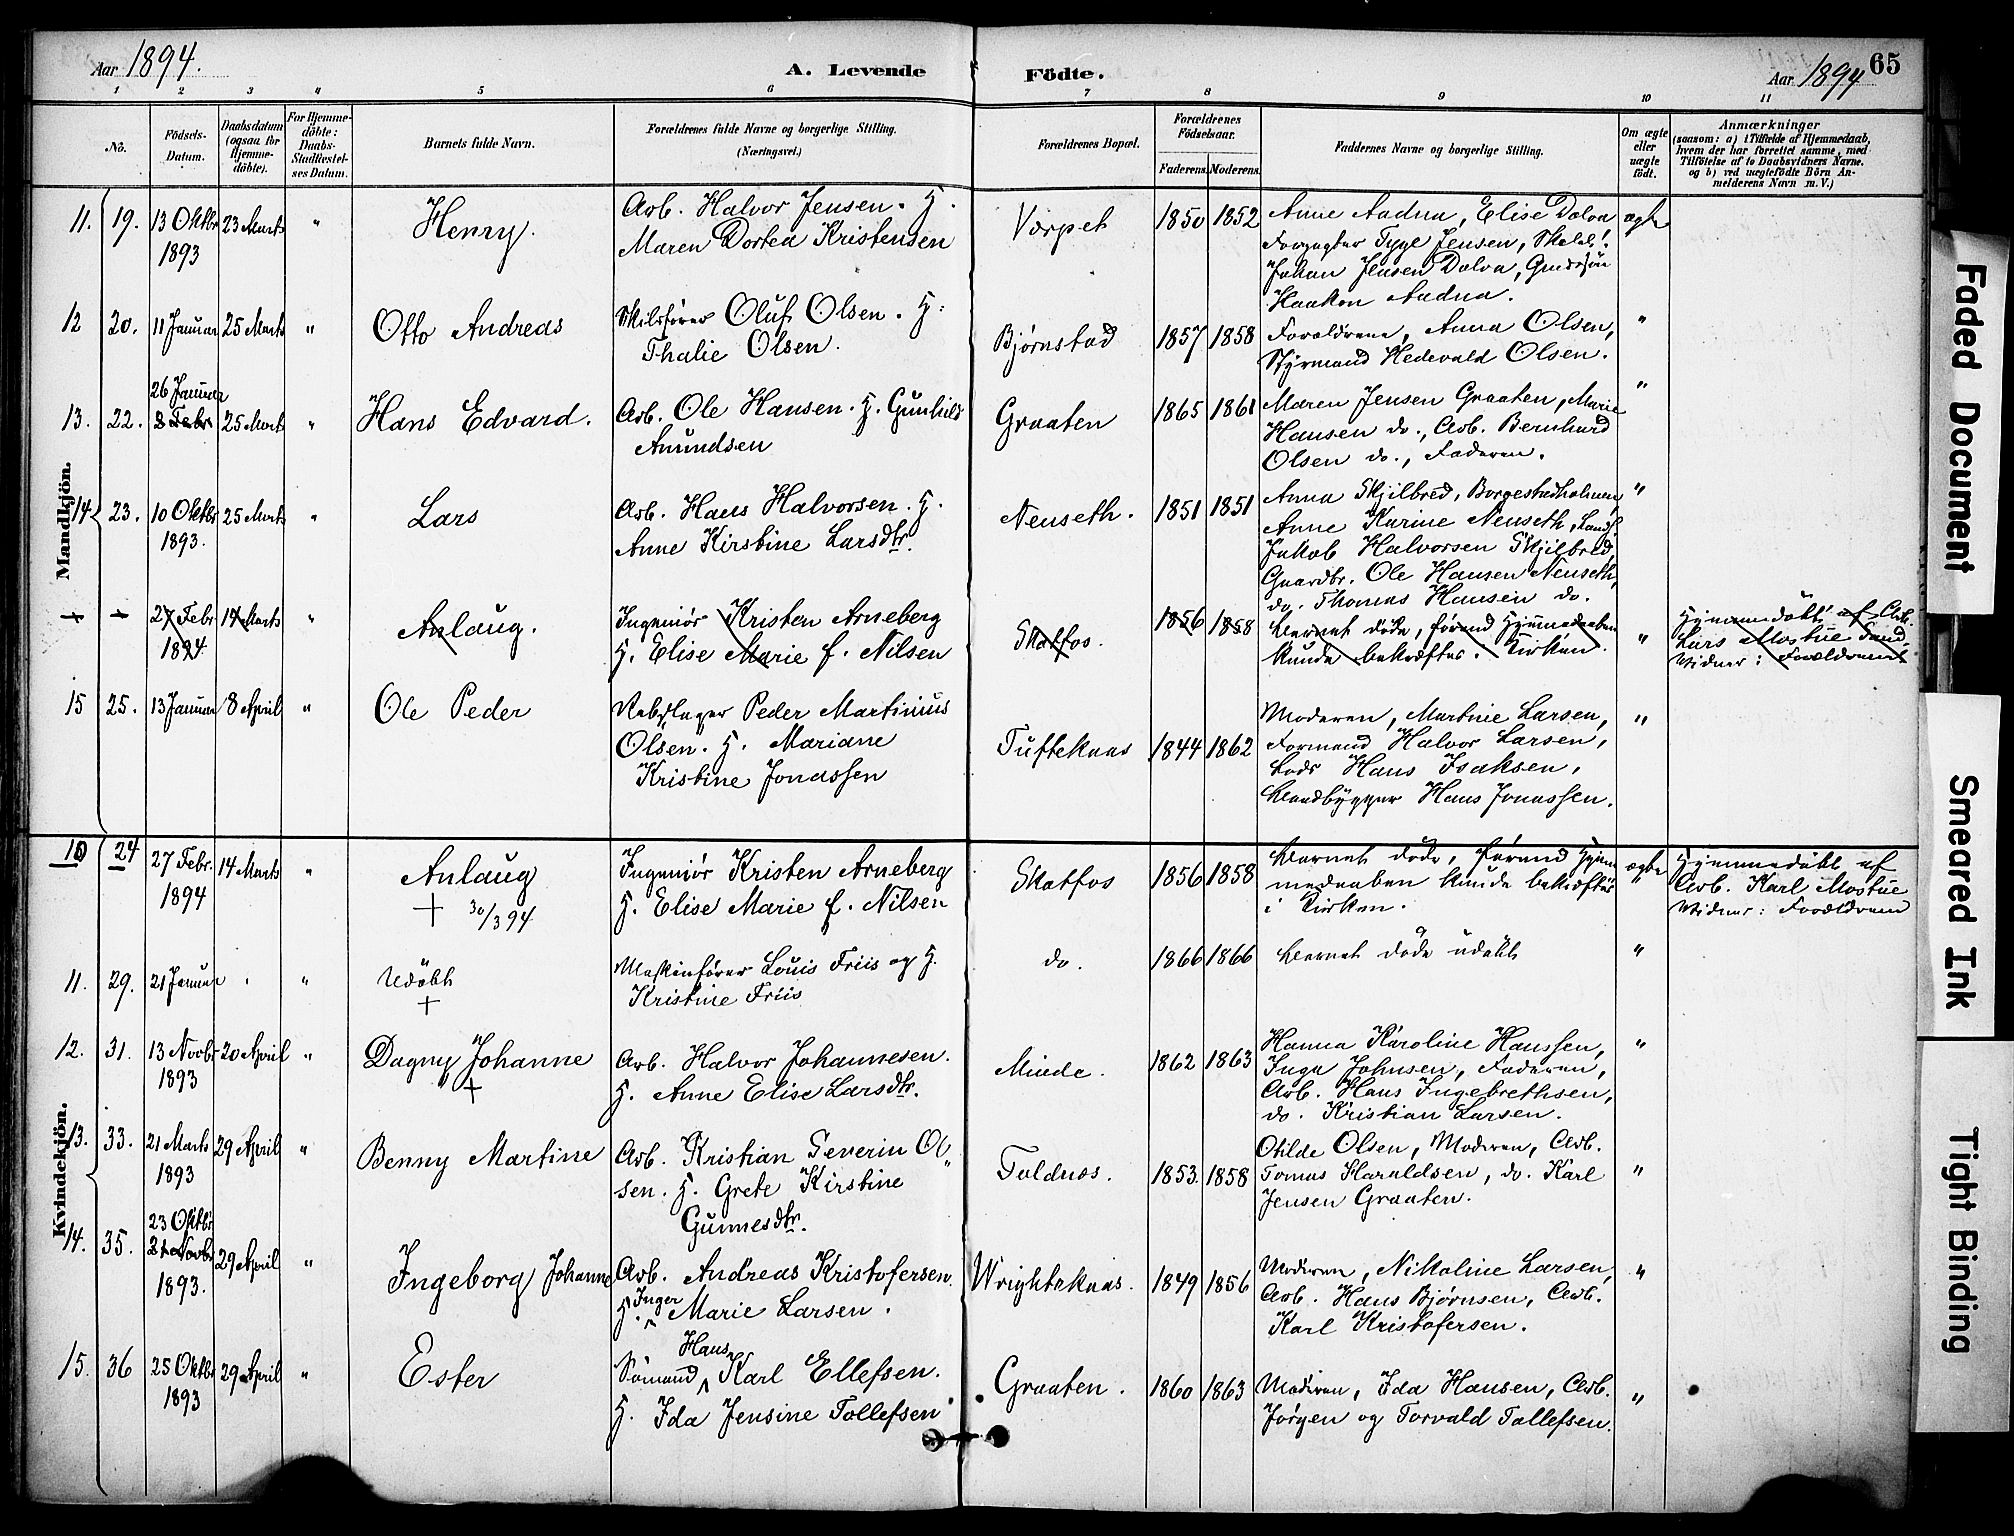 Aar 1894.
A. Levende Fødte.
Aar 1894
65
1 2 3 4 5 6 7 8 9 10 11
No.
Födsels-Datum.
Daabsdatum (ogsaa for Hjemme-döbte).
For Hjemme-döbte: Daabs-Stadfæstel-ses Datum.
Barnets fulde Navn.
Forældrenes fulde Navne og borgerlige Stilling. (Næringsvei.)
Forældrenes Bopæl.
Forældrenes Födselsaar.
Faderens. Moderens.
Faddernes Navne og borgerlige Stilling.
Om ægte eller uægte födt.
Anmærkninger
(saasom: a) i Tilfælde af Hjemmedaab,
hvem der har forrettet samme, med
Tilföielse af to Daabsvidners Navne.
og b) ved uægtefödte Börn An-
melderens Navn m. V.)
Mandkjön.
11. 19. 13 Oktbr 1893 23 Marts " Henry.
Arb. Halvor Jensen. H.
Maren Dortea Kristensen
Værpet 1850 1852
Anne Aadna, Elise Dolva
Forpagter Tyge Jensen,
Johan Jensen Dolva,
Haakon Aadna.
ægte
12 20. 11 Januar 25 Marts " Otto Andreas
Oluf Olsen. H:
Thalie Olsen.
Bjørnstad 1857 1858
Forældrene, Anna Olsen,
Styrmand Hedevald Olsen.
"
13. 22. 26 Januar 8 Febr 25 Marts " Hans Edvard.
Arb. Ole Hansen. H. Gunhild
Amundsen
Graaten 1865 1861
Maren Jensen Graaten, Marie
Hansen do., Arb. Bernhard
Olsen do., Faderen.
"
14 23. 10 Oktbr 1893. 25 Marts " Lars
Arb. Hans Halvorsen. H.
Anne Kirstine Larsdtr.
Nenseth. 1851 1851
Anna Skjilbred, Borgestadholmen,
Anne Karine Nenseth,
Jakob Halvorsen Skjilbred,
Gaardbr. Ole Hansen Nenseth,
do. Thomas Hansen do.
"
27 Febr 1894 14 Marts " Anlaug.
Ingeniør Kristen Arneberg
H. Elise Marie f. Nilsen
Skotfos. 1856 1858
Barnet døde, førend Hjemmedaaben
kunde bekræftes i Kirken.
"
Hjemmedöbt af Arb.
Lars Mostue
Vidner: Forældrene
15 25. 13 Januar 8 April " Ole Peder
Rebslager Peder Martinius
Olsen. H. Mariane
Kristine Jonassen
Tufteknas 1844 1862
Moderen, Martine Larsen,
Formand Halvor Larsen,
Lods Hans Isaksen,
Baadbygger Hans Jonassen.
"
Kvindekjön.
10 24 27 Febr. 1894 14 Marts " Anlaug
+ 30/3 94
Ingeniør Kristen Arneberg
H. Elise Marie f. Nilsen
Skotfos 1856 1858
Barnet døde, førend Hjem
medaaben kunde bekræftes
i Kirken.
ægte
Hjemmedöbt af
Arb. Karl Mostue
Vidner: Forældrene
11. 29. 21 Januar " " Udöbt
+
Maskinfører Louis Friis og H.
Kristine Friis
do. 1866 1866
Barnet døde udøbt
"
12. 31. 13 Novbr 1893 20 April " Dagny Johanne
+
Arb. Halvor Johannesen.
H. Anne Elise Larsdtr.
Minde. 1862 1863
Hanna Karoline Hanssen,
Inga Johnsen, Faderen,
Arb. Hans Ingebrethsen,
do. Kristian Larsen.
"
13. 33. 21 Marts 1893 29 April " Benny Martine
Arb. Kristian Severin Ol
sen. H. Grete Kirstine
Gunnesdtr.
Foldnes. 1853. 1858
Otilde Olsen, Moderen, Arb.
Tomas Haraldsen, do. Karl
Jensen Graaten.
"
14. 35. 23 Oktbr 21 Novbr 1893. 29 April " Ingeborg Johanne
Arb. Andreas Kristofersen.
H. Inger Marie Larsen.
Wrightsknas. 1849 1856
Moderen, Nikoline Larsen,
Arb. Hans Bjørnsen, Arb.
Karl Kristofersen.
"
15. 36 25 Oktbr 1893 29 April " Ester
Sømand Hans Karl Ellefsen.
H. Ida Jensine Tollefsen
Graaten. 1860 1863
Moderen, Ida Hansen, Arb.
Jørgen og Torvald Tollefsen.
"
Faded Document
Smeared Ink
Tight Binding